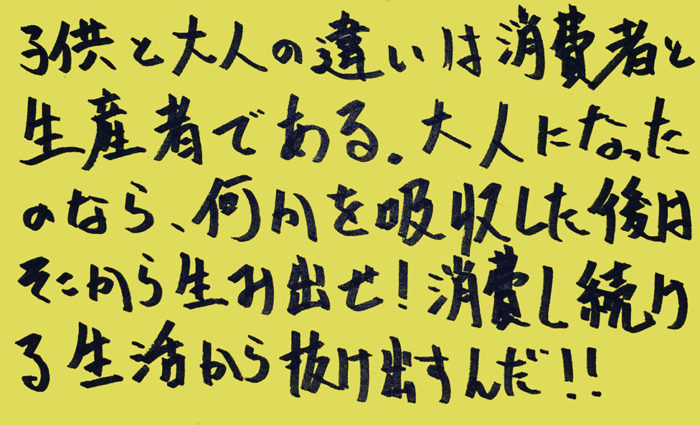 子供と大人の違いは消費者と
生産者である。大人になった
のなら、何かを吸収した後は
そこから生み出せ!消費し続け
る生活から抜け出すんだ!!